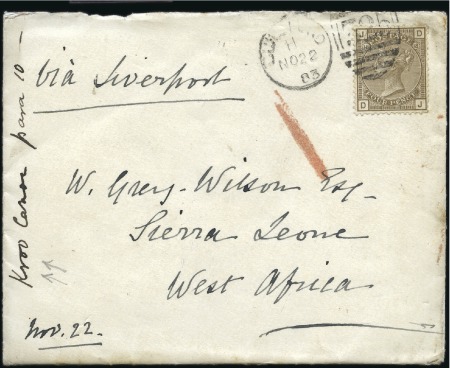 Via Liverpool
H
NO22
83
J D
FOUR PENCE
D J
W. Grey-Wilson Esq-
Sierra Leone
West Africa
Nov. 22.
Kroo Canoe para 10 -